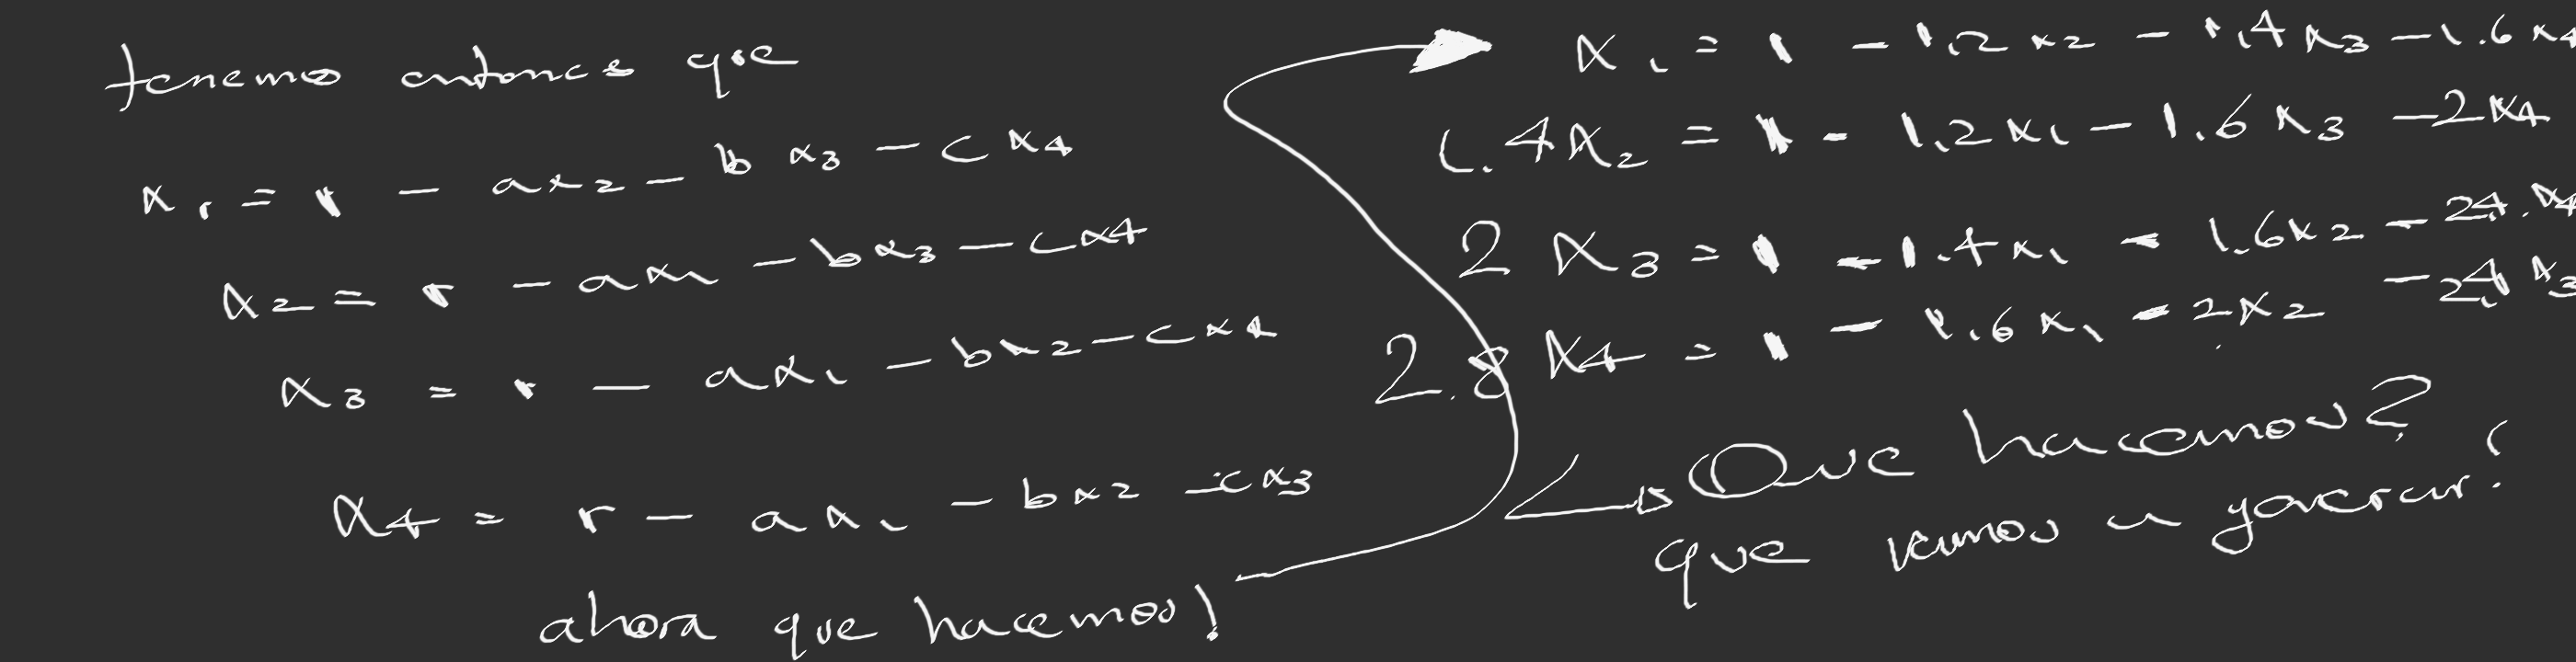 tenemos entonces que
x₁ = r - ax₂ - bx₃ - cx₄
x₂ = r - ax₁ - bx₃ - cx₄
x₃ = r - ax₁ - bx₂ - cx₄
x₄ = r - ax₁ - bx₂ - cx₃
ahora que hacemos!
x₁ = 1 - 1.2x₂ - 1.4x₃ - 1.6x₄
1.4x₂ = 1 - 1.2x₁ - 1.6x₃ - 2x₄
2x₃ = 1 - 1.4x₁ - 1.6x₂ - 24.x₄
2.8x₄ = 1 - 1.6x₁ - 2x₂ - 2.4x₃
Que hacemos?
que vamos a